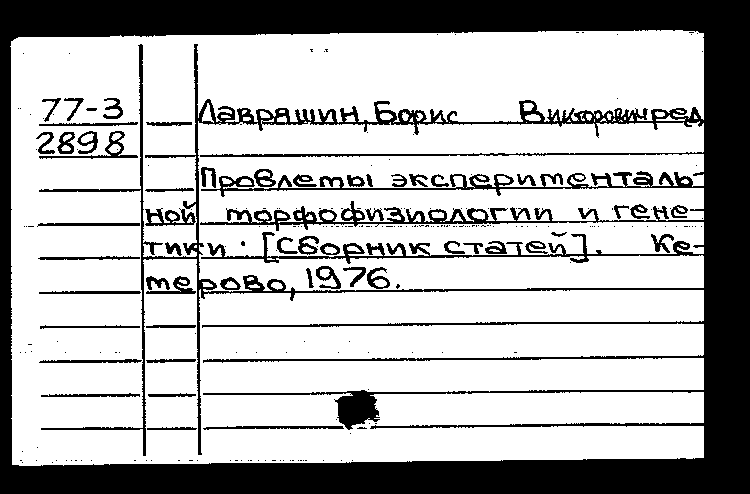 77-3 Лавряшин, Борис Викторович ред
2898
Проблемы эксперименталь-
ной морфофизиологии и гене-
тики. [Сборник статей]. Ке-
мерово, 1976.